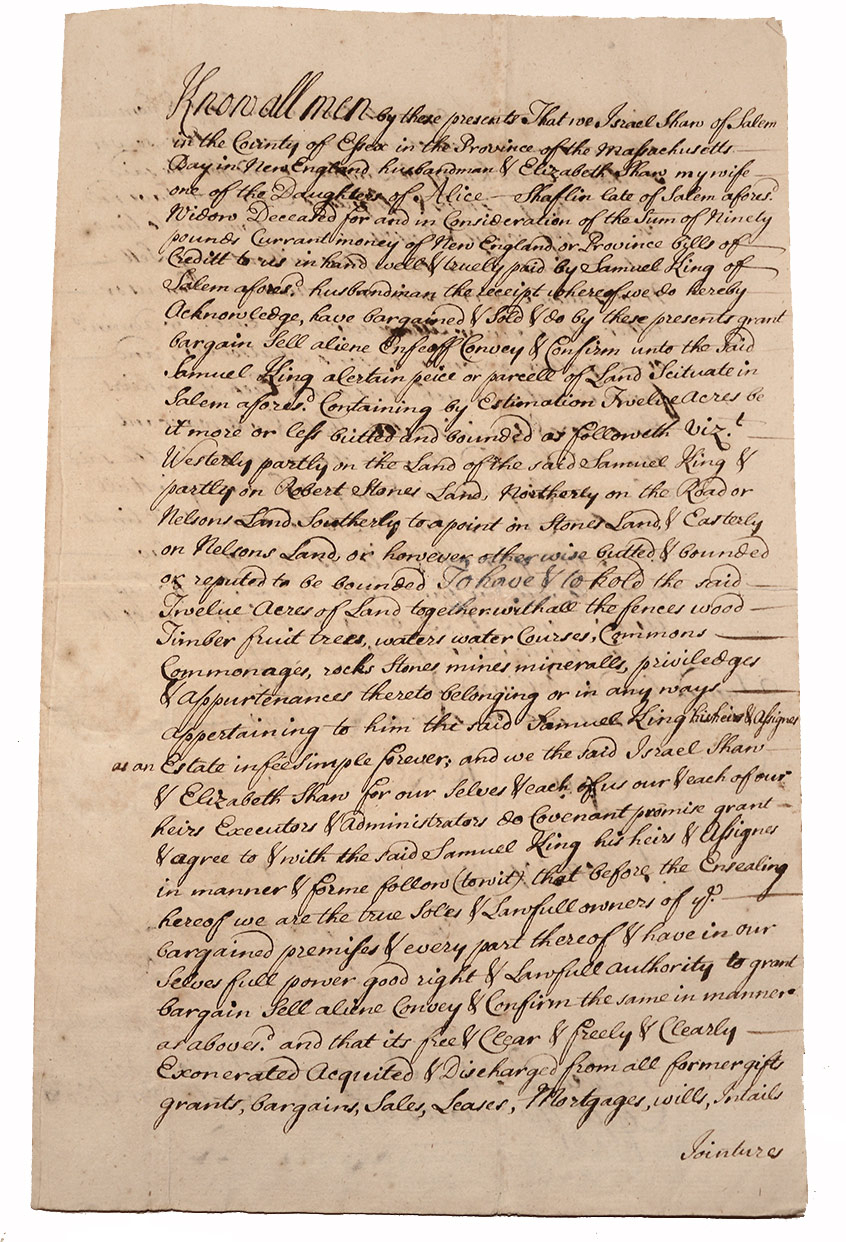 Know all men by these presents That we Israel Shaw of Salem
in the County of Essex in the Province of the Massachusetts
Bay in New England husbandman & Elizabeth Shaw my wife
one of the Daughters of Alice Shaflin late of Salem afores.d
Widow Deceased for and in Consideration of the Sum of Ninety
pounds Currant money of New England or Province bills of
Creditt to us in hand well & truely paid by Samuel King of
Salem afores.d husbandman the receipt whereof we do hereby
Acknowledge, have bargained & Sold & do by these presents grant
bargain Sell aliene Enfeoff Convey & Confirm unto the Said
Samuel King a Certain peice or parcell of Land Scituate in
Salem afores.d Containing by Estimation Twelve Acres be
it more or less butted and bounded as followeth Viz.t
Westerly partly on the Land of the said Samuel King &
partly on Robert Stones Land, Northerly on the Road or
Nelsons Land Southerly to a point in Stones Land, & Easterly
on Nelsons Land, or however otherwise butted & bounded
or reputed to be bounded To have & to hold the said
Twelve Acres of Land together with all the fences wood
Timber fruit trees, waters water Courses, Commons
Commonages, rocks Stones mines mineralls, priviledges
& Appurtenances thereto belonging or in any ways
appertaining to him the said Samuel King his heirs & Assignes
as an Estate in fee Simple forever; and we the said Israel Shaw
& Elizabeth Shaw for our Selves & each of us our & each of our
heirs Executors & Administrators do Covenant promise grant
& agree to & with the said Samuel King his heirs & Assignes
in manner & forme follow (to wit) that before the Ensealing
hereof we are the true Soles & Lawfull owners of ye.
bargained premises & every part thereof & have in our
Selves full power good right & Lawfull authority to grant
bargain Sell aliene Convey & Confirm the same in manner
as aboves.d and that its free & Clear & freely & Clearly
Exonerated Acquited & Discharged from all former gifts
grants, bargains, Sales, Leases, Mortgages, wills, Intails
Jointures